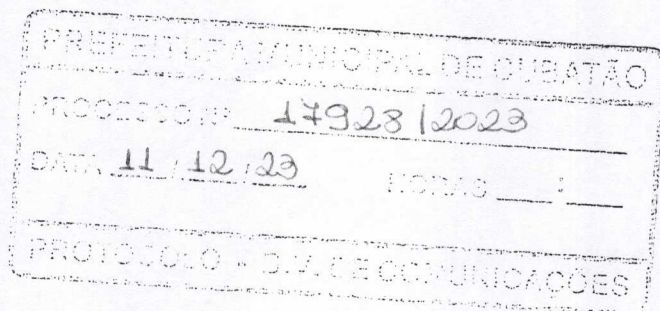 PREFEITURA MUNICIPAL DE CUBATÃO
PROCESSO Nº 17928/2023
DATA 11/12/23 HORAS ___:___
PROTOCOLO - DIV. DE COMUNICAÇÕES